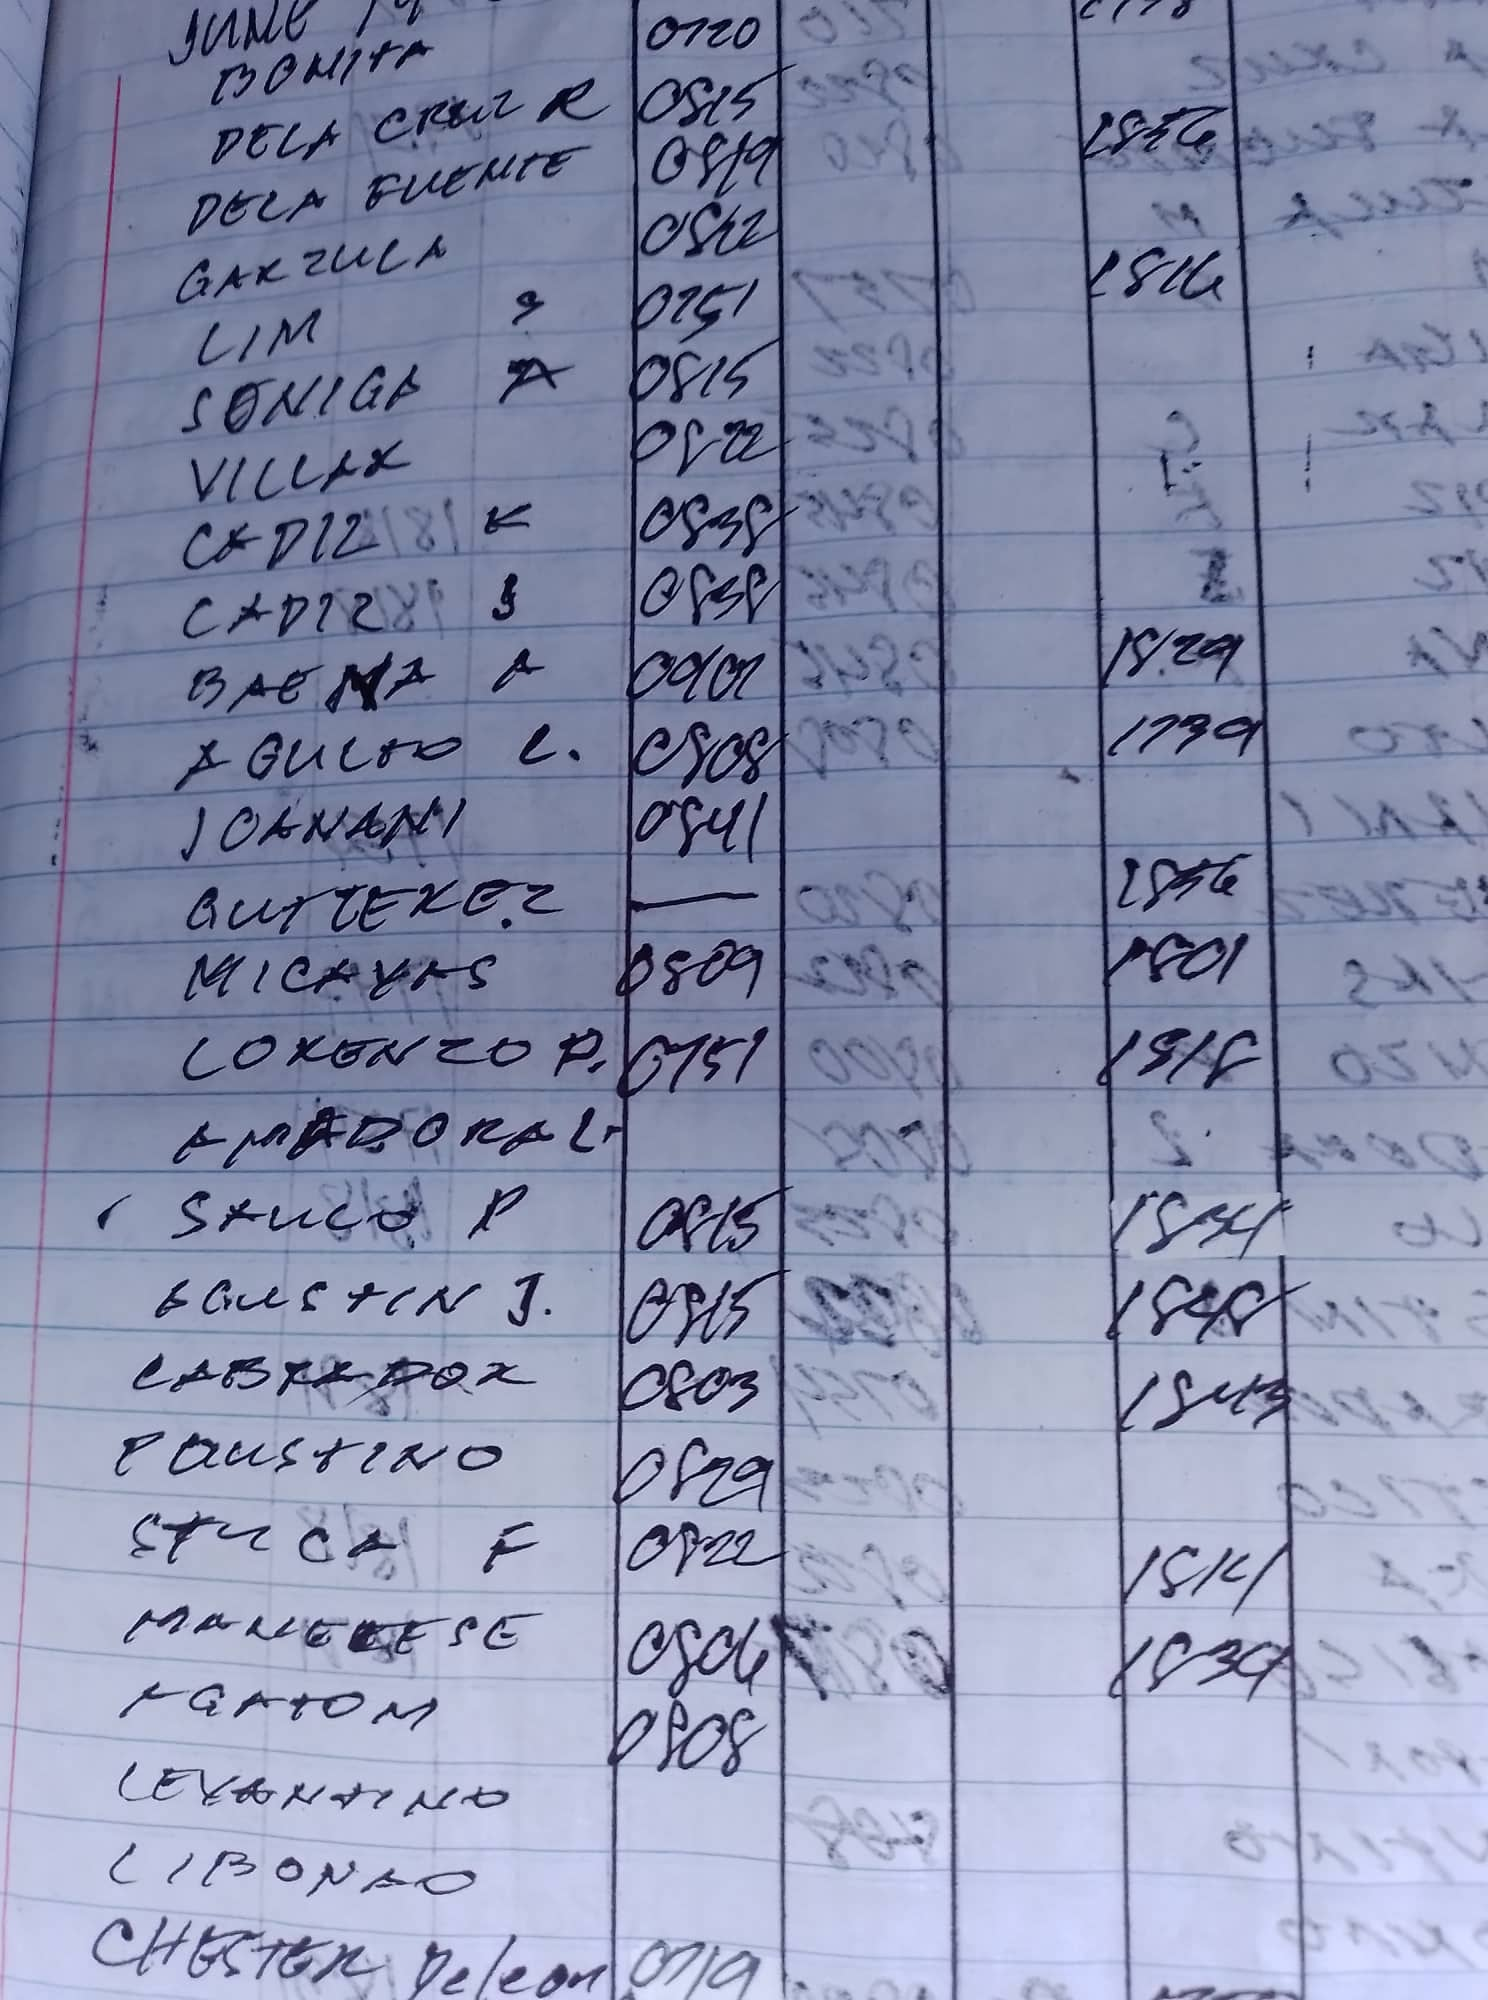 JUNE
BONITA 0720
DELA CRUZ R 0815 1856
DELA FUENTE 0819
GARZULA 0842 1816
LIM S 0751
SONIGA A 0815
VILLAR 0822
CADIZ K 0838
CADIZ J 0838
BAENA A 0902 1829
AGULTO L. 0808 1739
JOANANI 0841
GUTTEREZ — 1856
MICAYAS 0809 1801
LORENZO P. 0751 1818
AMADORA L.
SAULO P 0815 1834
AGUSTIN J. 0815 1848
LABRADOR 0803 1843
POUSTINO 0829
STUCA F 0822 1814
MANEEESE 0806 1839
AGATOM 0808
LEVANTINO
LIBONAO
CHESTER Deleon 0719